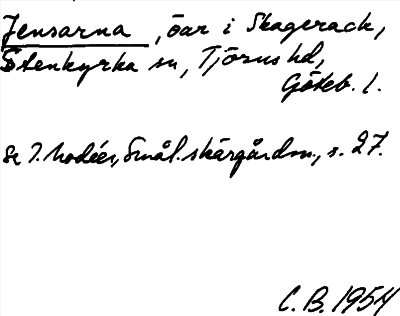 Jensarna, öar i Skagerack,
Stenkyrka sn, Tjörns hd,
Göteb. l.
Se I. Modéer, Smål. skärgårdsn., s. 27.
C. B. 1954